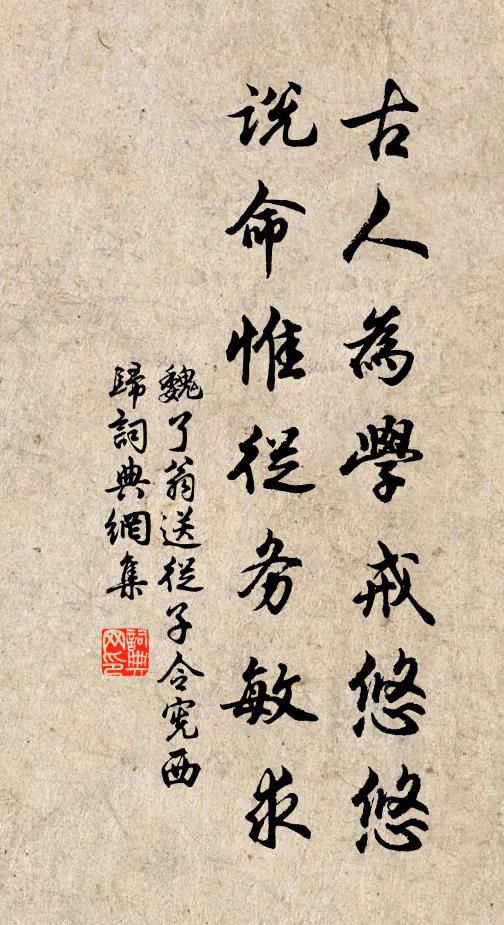 古人為學戒悠悠
说命惟從务敏求
魏了翁送從子令宪西
歸詞典網集
詞典网印